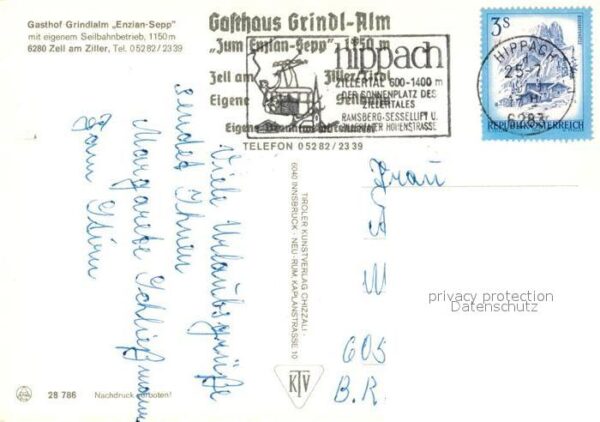 Gasthof Grindlalm „Enzian-Sepp"
mit eigenem Seilbahnbetrieb, 1150 m
6280 Zell am Ziller, Tel. 0 52 82 / 23 39
Gasthaus Grindl-Alm
„Zum Enzian-Sepp" 1150 m
Zell am Ziller/Tirol
Eigene
Eigene
TELEFON 0 52 82 / 23 39
hippach
ZILLERTAL 600-1400 m
DER SONNENPLATZ DES
ZILLERTALES
RAMSBERG-SESSELLIFT U.
HÖHENSTRASSE
3S
HIPPACH
25.-7.
6283
REPUBLIK ÖSTERREICH
Viele Urlaubsgrüße
sendet Ihnen
Margarete
Frau
A
W
605
B.R.
TIROLER KUNSTVERLAG CHIZZALI ·
6040 INNSBRUCK - NEU-RUM, KAPLANSTRASSE 10
KTV
28 786 Nachdruck verboten!
privacy protection
Datenschutz